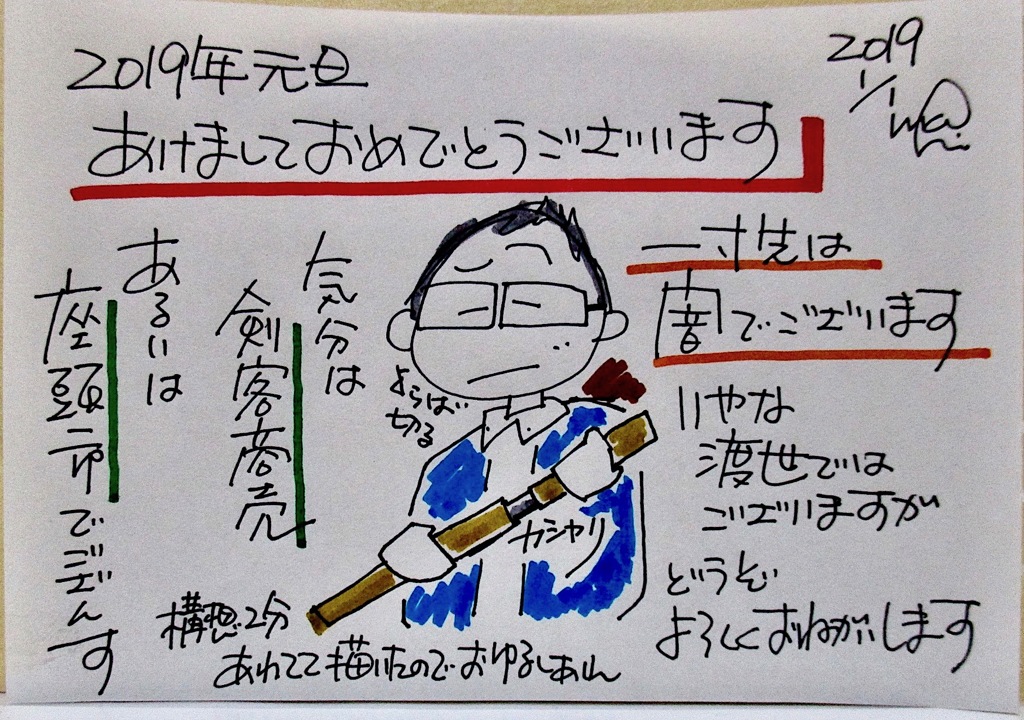 2019年元旦
あけましておめでとうございます
2019
1/1
一寸先は
闇でございます
いやな
渡世では
ございますが
どうぞ
よろしくおねがいします
よらば
切る
カシャリ
気分は
剣客商売
あるいは
座頭市でござんす
構想2分
あわてて描いたのでおゆるしあれ